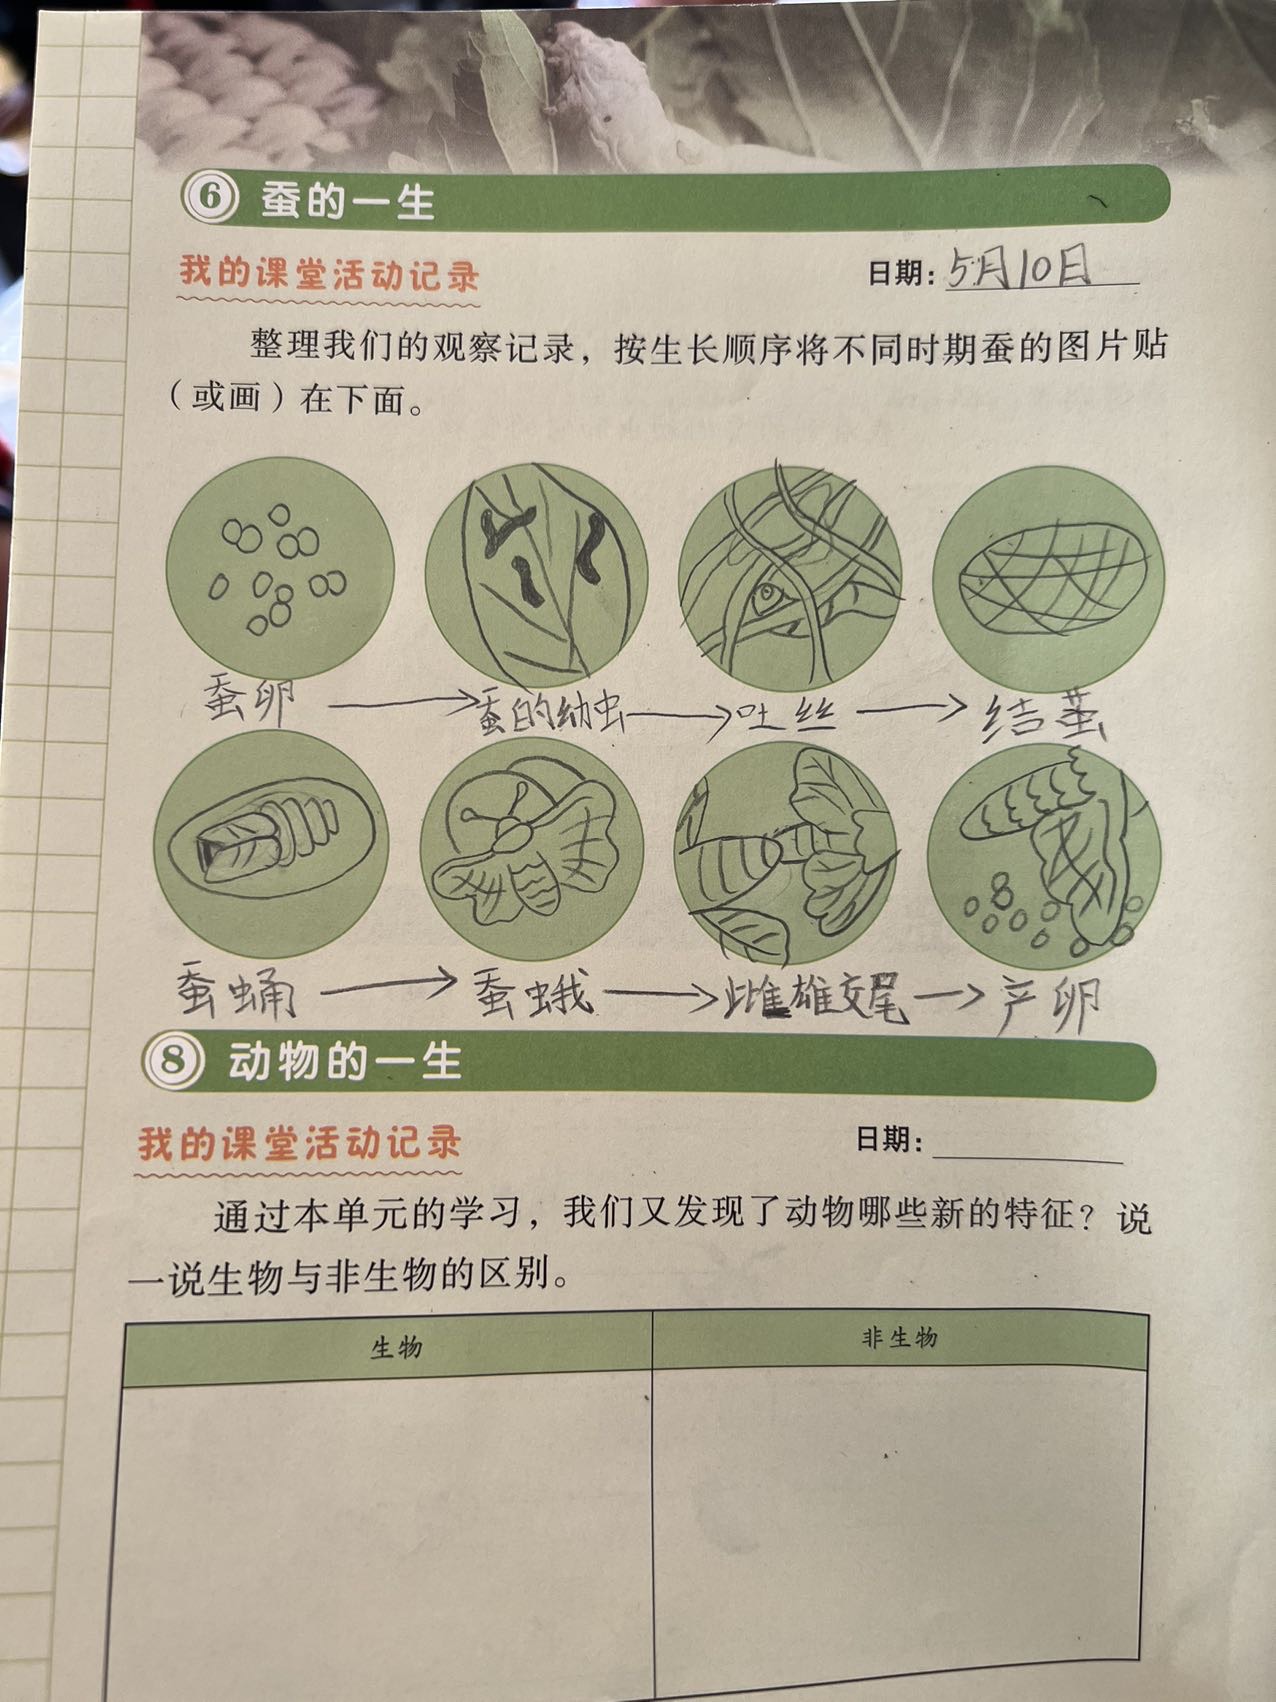 6 蚕的一生
我的课堂活动记录 日期：5月10日
整理我们的观察记录，按生长顺序将不同时期蚕的图片贴
（或画）在下面。
蚕卵 → 蚕的幼虫 → 吐丝 → 结茧
蚕蛹 → 蚕蛾 → 雌雄交尾 → 产卵
8 动物的一生
我的课堂活动记录 日期：
通过本单元的学习，我们又发现了动物哪些新的特征？说
一说生物与非生物的区别。
生物 非生物